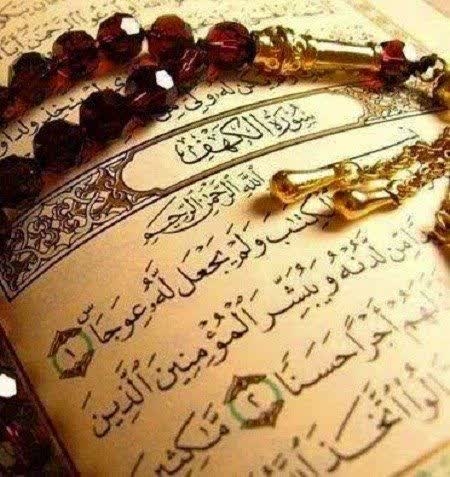 وَلِيٌّ مِّنَ
سُورَةُ الكَهْفِ
ٱللَّهِ ٱلرَّحْمَٰنِ ٱلرَّحِيمِ
ٱلْكِتَٰبَ وَلَمْ يَجْعَل لَّهُۥ عِوَجَاۜ ١
مِّن لَّدُنْهُ وَيُبَشِّرَ ٱلْمُؤْمِنِينَ ٱلَّذِينَ
لَهُمْ أَجْرًا حَسَنًا ٢ مَّٰكِثِينَ
قَالُوا۟ ٱتَّخَذَ ٱللَّهُ